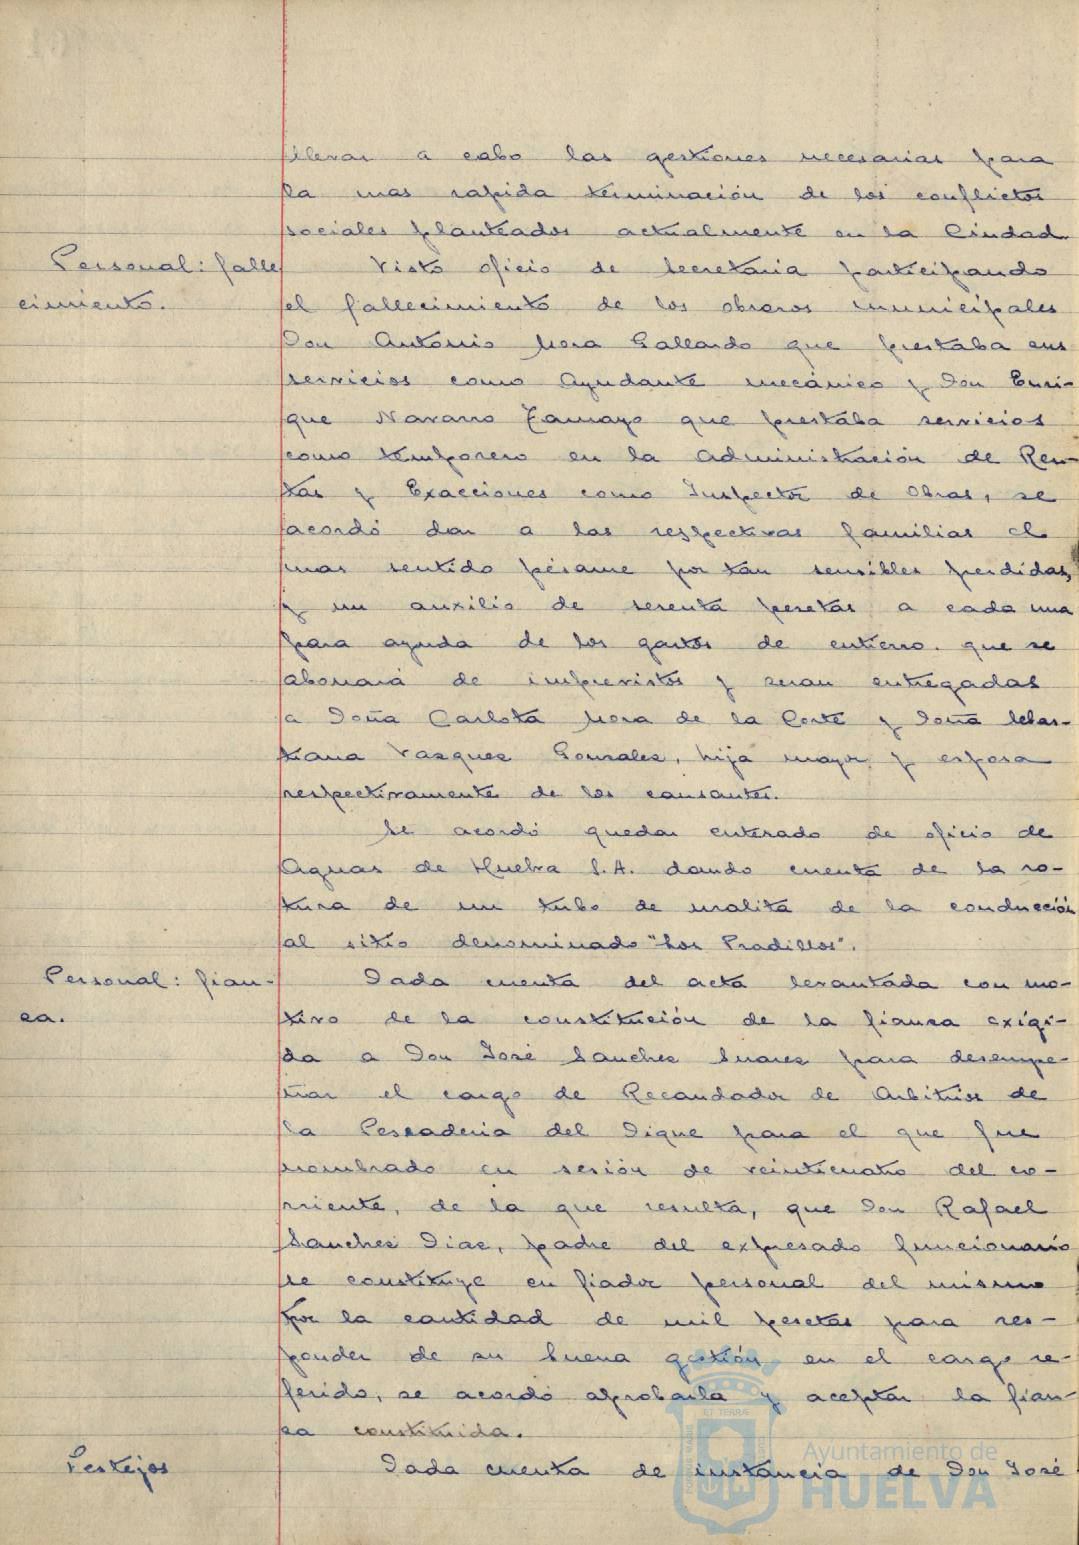 llevar a cabo las gestiones necesarias para
la mas rapida terminación de los conflictos
sociales planteados actualmente en la Ciudad.
Personal: falle
cimiento.
Visto oficio de Secretaria participando
el fallecimiento de los obreros municipales
Don Antonio Mora Gallardo que prestaba sus
servicios como Ayudante mecánico y Don Enri-
que Navarro Tamayo que prestaba servicios
como temporero en la administración de Ren-
tas y Exacciones como Inspector de Obras, se
acordó dar a las respectivas familias el
mas sentido pésame por tan sensibles perdidas,
y un auxilio de pesetas a cada una
para ayuda de los gastos de entierro. que se
abonará de imprevistos y seran entregadas
a Doña Carlota Mora de la Corte y Doña Sebas-
tiana Vazquez Gonzalez, hija mayor y esposa
respectivamente de los causantes.
Se acordó quedar enterado de oficio de
Aguas de Huelva S.A. dando cuenta de la ro-
tura de un tubo de uralita de la conducción
al sitio denominado "Los Pradillos".
Personal: fian-
za.
Dada cuenta del acta levantada con mo-
tivo de la constitución de la fianza exigi-
da a Don José Sanchez Suarez para desempe-
ñar el cargo de Recaudador de Arbitrios de
la Pescaderia del Dique para el que fue
nombrado en sesión de veinticuatro del co-
rriente, de la que resulta, que Don Rafael
Sanchez Diaz, padre del expresado funcionario
se constituye en fiador personal del mismo
por la cantidad de mil pesetas para res-
ponder de su buena gestión en el cargo re-
ferido, se acordó aprobarla y aceptar la fian-
za constituida.
Festejos
Dada cuenta de instancia de Don José
Ayuntamiento de
HUELVA